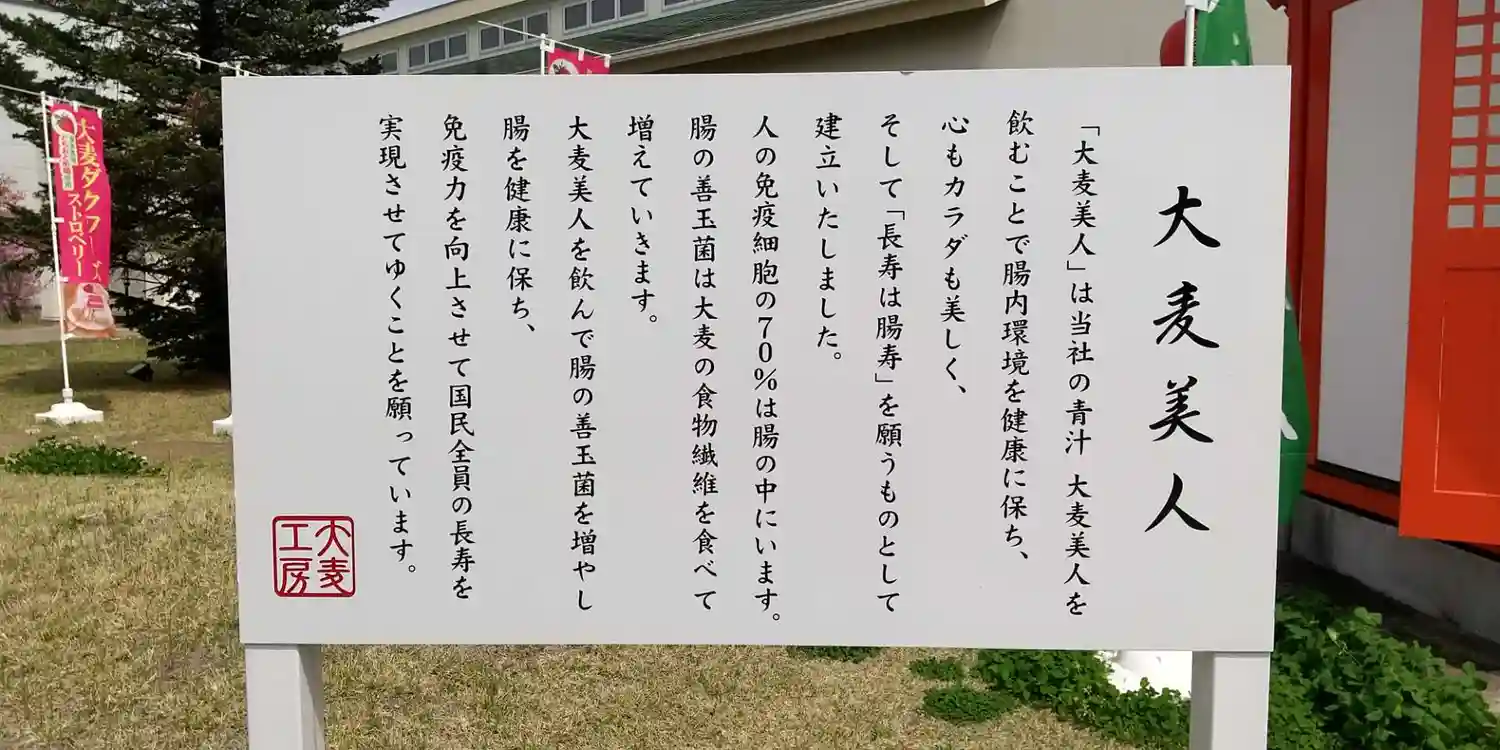 大麦美人
「大麦美人」は当社の青汁 大麦美人を
飲むことで腸内環境を健康に保ち、
心もカラダも美しく、
そして「長寿は腸寿」を願うものとして
建立いたしました。
人の免疫細胞の70%は腸の中にいます。
腸の善玉菌は大麦の食物繊維を食べて
増えていきます。
大麦美人を飲んで腸の善玉菌を増やし
腸を健康に保ち、
免疫力を向上させて国民全員の長寿を
実現させてゆくことを願っています。
大麦
工房
大麦ダクワ
ストロベリー